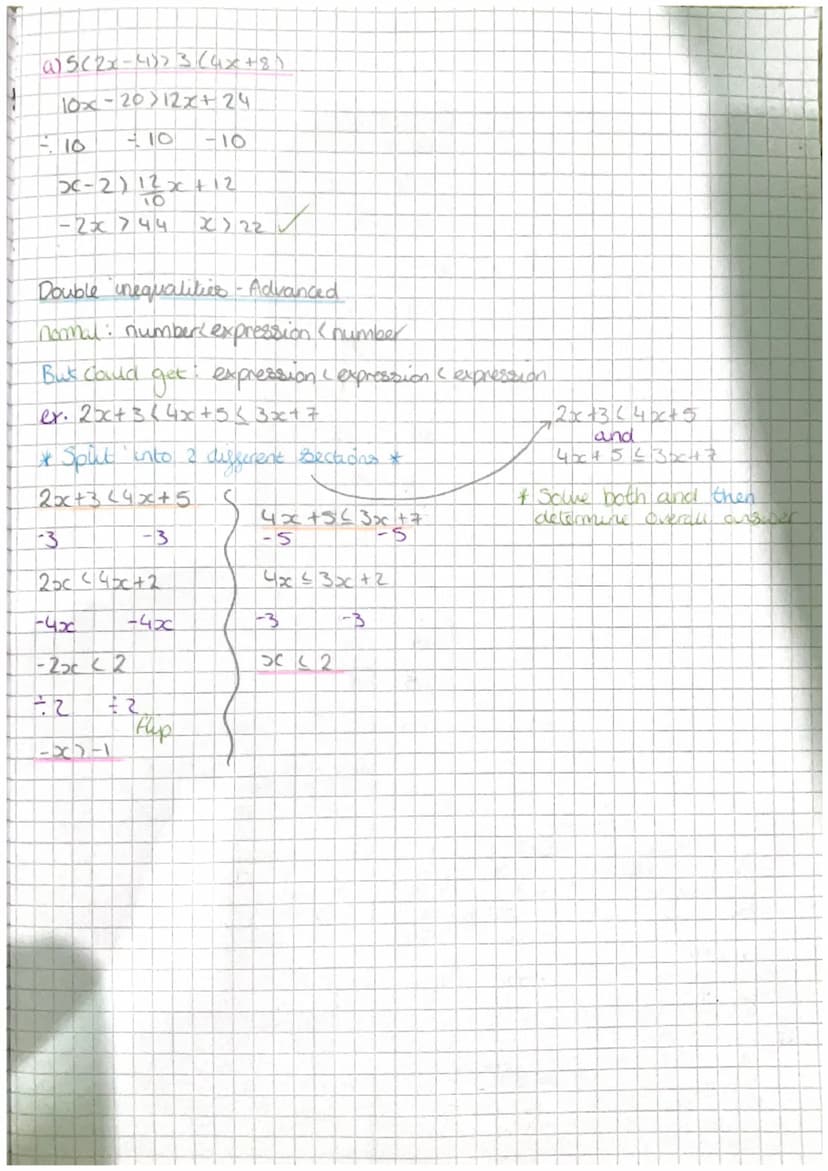 a) 5(2x-4)>3(4x+8)
10x-20>12x+24
÷10 ÷10 -10
x-2>12/10x+12
-2x>44 x>22 ✓
Double inequalities - Advanced
normal: number<expression<number
But could get: expression<expression<expression
ex. 2x+3<4x+5≤3x+7
2x+3<4x+5
and
4x+5≤3x+7
* Split into 2 different sections *
* Solve both and then
determine overall answer
2x+3<4x+5
-3 -3
2x<4x+2
-4x -4x
-2x<2
÷2 ÷2
flip
-x>-1
4x+5≤3x+7
-5 -5
4x≤3x+2
-3 -3
x≤2